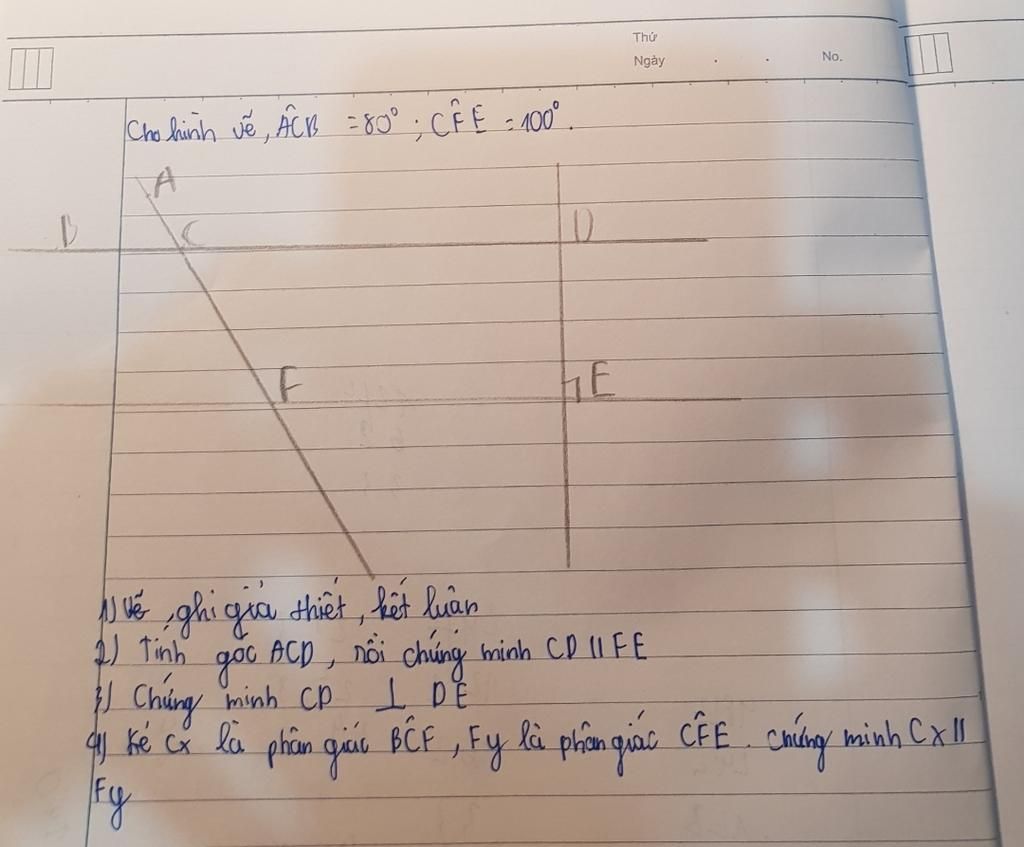 Thứ
Ngày . . No.
Cho hình vẽ, ÂCB = 80°; CF̂E = 100°.
A
B C D
F E
1) Vẽ, ghi giả thiết, kết luận
2) Tính góc ACD, rồi chứng minh CD || FE
3) Chứng minh CD ⊥ DE
4) Kẻ Cx là phân giác BĈF, Fy là phân giác CF̂E. Chứng minh Cx ||
Fy